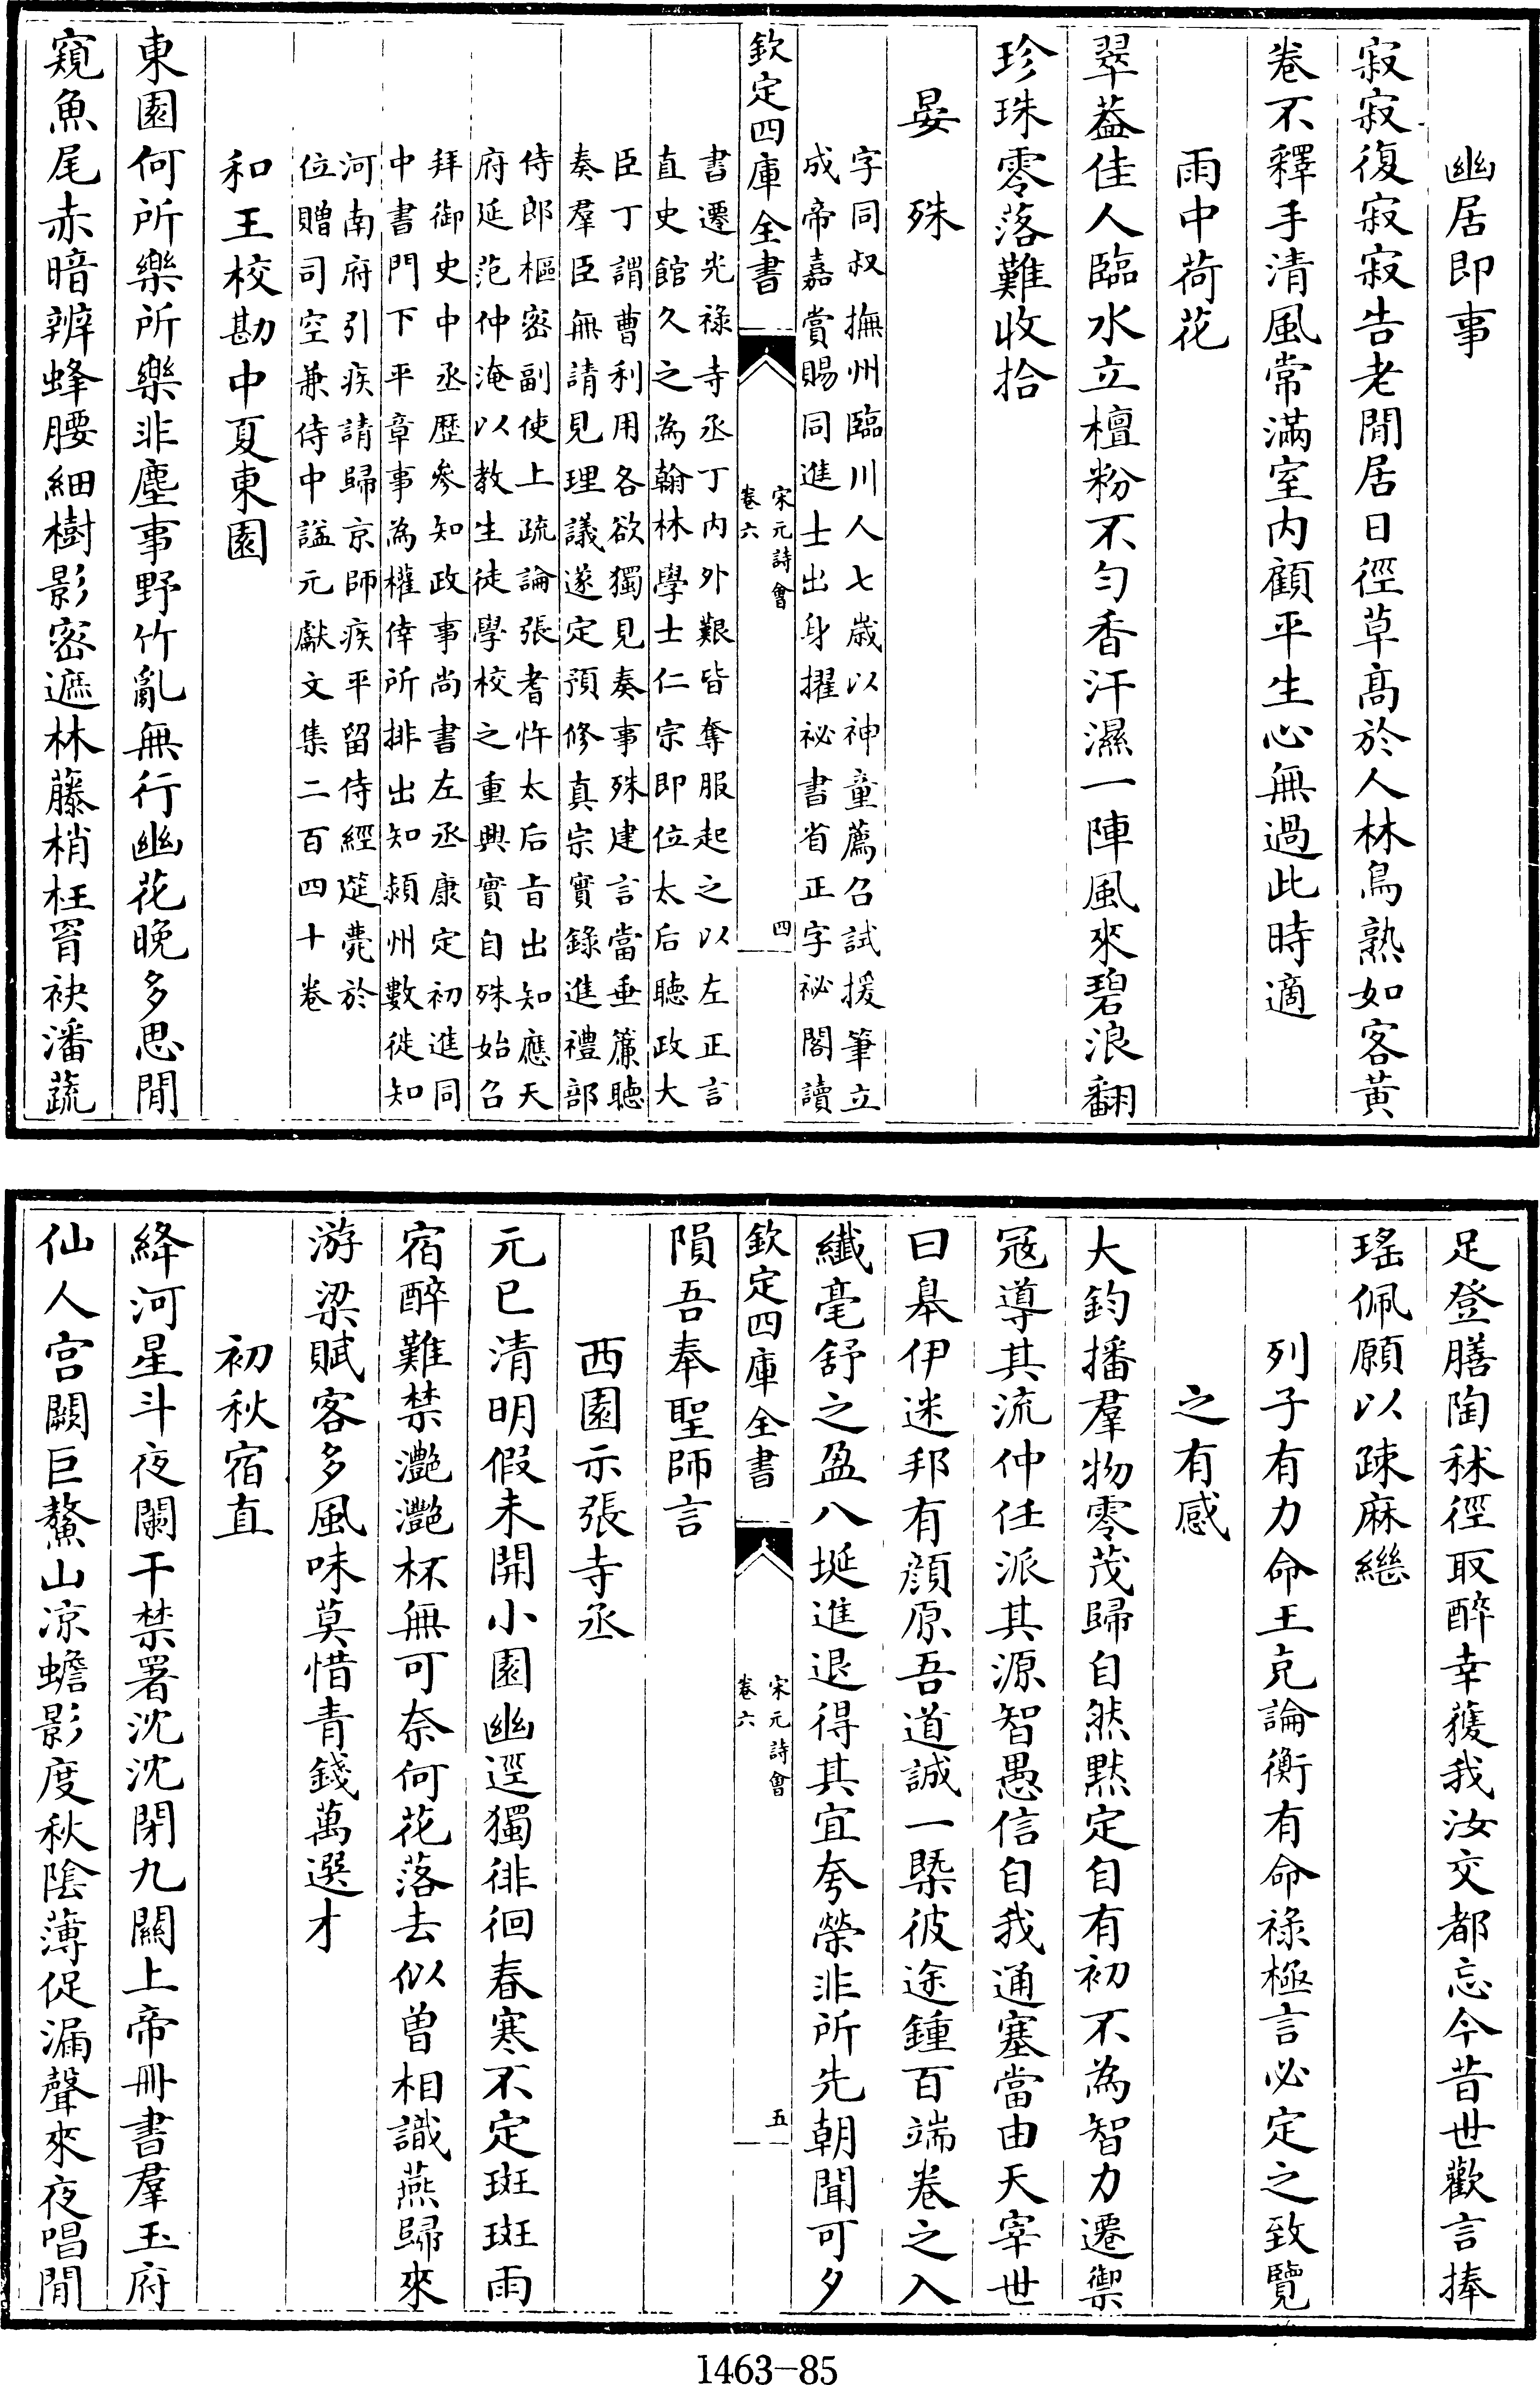 幽居即事
寂寂復寂寂告老閒居日徑草髙於人林鳥熟如客黄
卷不釋手清風常滿室内顧平生心無過此時適
雨中荷花
翠葢佳人臨水立檀粉不勻香汗濕一陣風來碧浪翻
珍珠零落難收拾
晏殊
字同叔撫州臨川人七歳以神童薦召試援筆立
成帝嘉賞賜同進士出身擢祕書省正字祕閣讀
欽定四庫全書
宋元詩會
卷六
四
書遷光禄寺丞丁内外艱皆奪服起之以左正言
直史館久之為翰林學士仁宗即位太后聽政大
臣丁謂曹利用各欲獨見奏事殊建言當垂簾聽
奏羣臣無請見理議遂定預修真宗實錄進禮部
侍郎樞密副使上疏論張耆忤太后㫖出知應天
府延范仲淹以教生徒學校之重興實自殊始召
拜御史中丞歴參知政事尚書左丞康定初進同
中書門下平章事為權倖所排出知頴州數徙知
河南府引疾請歸京師疾平留侍經筵薨於
位贈司空兼侍中諡元獻文集二百四十卷
和王校勘中夏東園
東園何所樂所樂非塵事野竹亂無行幽花晚多思閒
窺魚尾赤暗辨蜂腰細樹影密遮林藤梢枉罥袂潘蔬
足登膳陶秫徑取醉幸蒦我汝交都忘今昔世歡言捧
瑤佩願以疎麻繼
列子有力命王充論衡有命禄極言必定之致覽
之有感
大鈞播羣物零茂歸自然黙定自有初不為智力遷禦
冦導其流仲任派其源智愚信自我通塞當由天宰世
曰臯伊迷邦有顔原吾道誠一槩彼途鍾百端卷之入
纖毫舒之盈八埏進退得其宜夸榮非所先朝聞可夕
欽定四庫全書
宋元詩會
卷六
五
隕吾奉聖師言
西園示張寺丞
元巳清明假未開小園幽逕獨徘徊春寒不定斑斑雨
宿醉難禁灔灔杯無可奈何花落去似曽相識燕歸來
游梁賦客多風味莫惜青錢萬選才
初秋宿直
絳河星斗夜闌干禁署沈沈閉九闗上帝冊書羣玉府
仙人宫闕巨鰲山凉蟾影度秋陰薄促漏聲來夜唱閒
1463-85